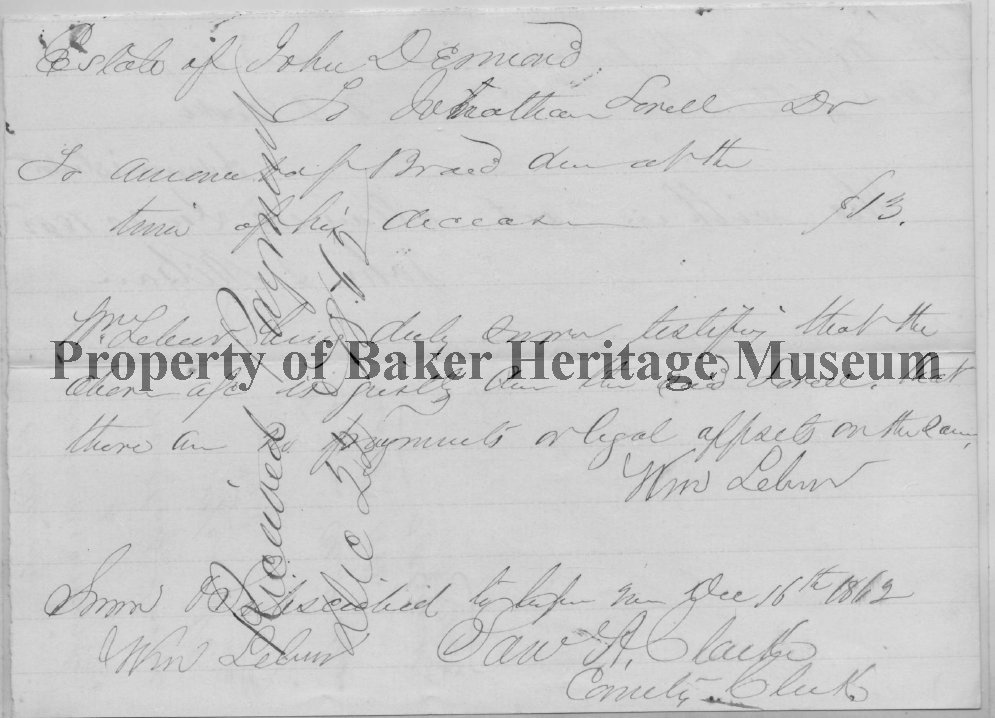 Estate of John Desmond
To Jonathan Lovell Dr
To amount of Board due at the
time of his decease $13.
Wm Lebur being duly sworn testifies that the
above a/c is justly due the said Lovell. that
there are no payments or legal offsets on the same,
Wm Lebur
Sworn & Subscribed to before me Dec 16th 1862
Wm Lebur Saml A. Clarke
County Clerk
Received Payment
Dec 22
Property of Baker Heritage Museum